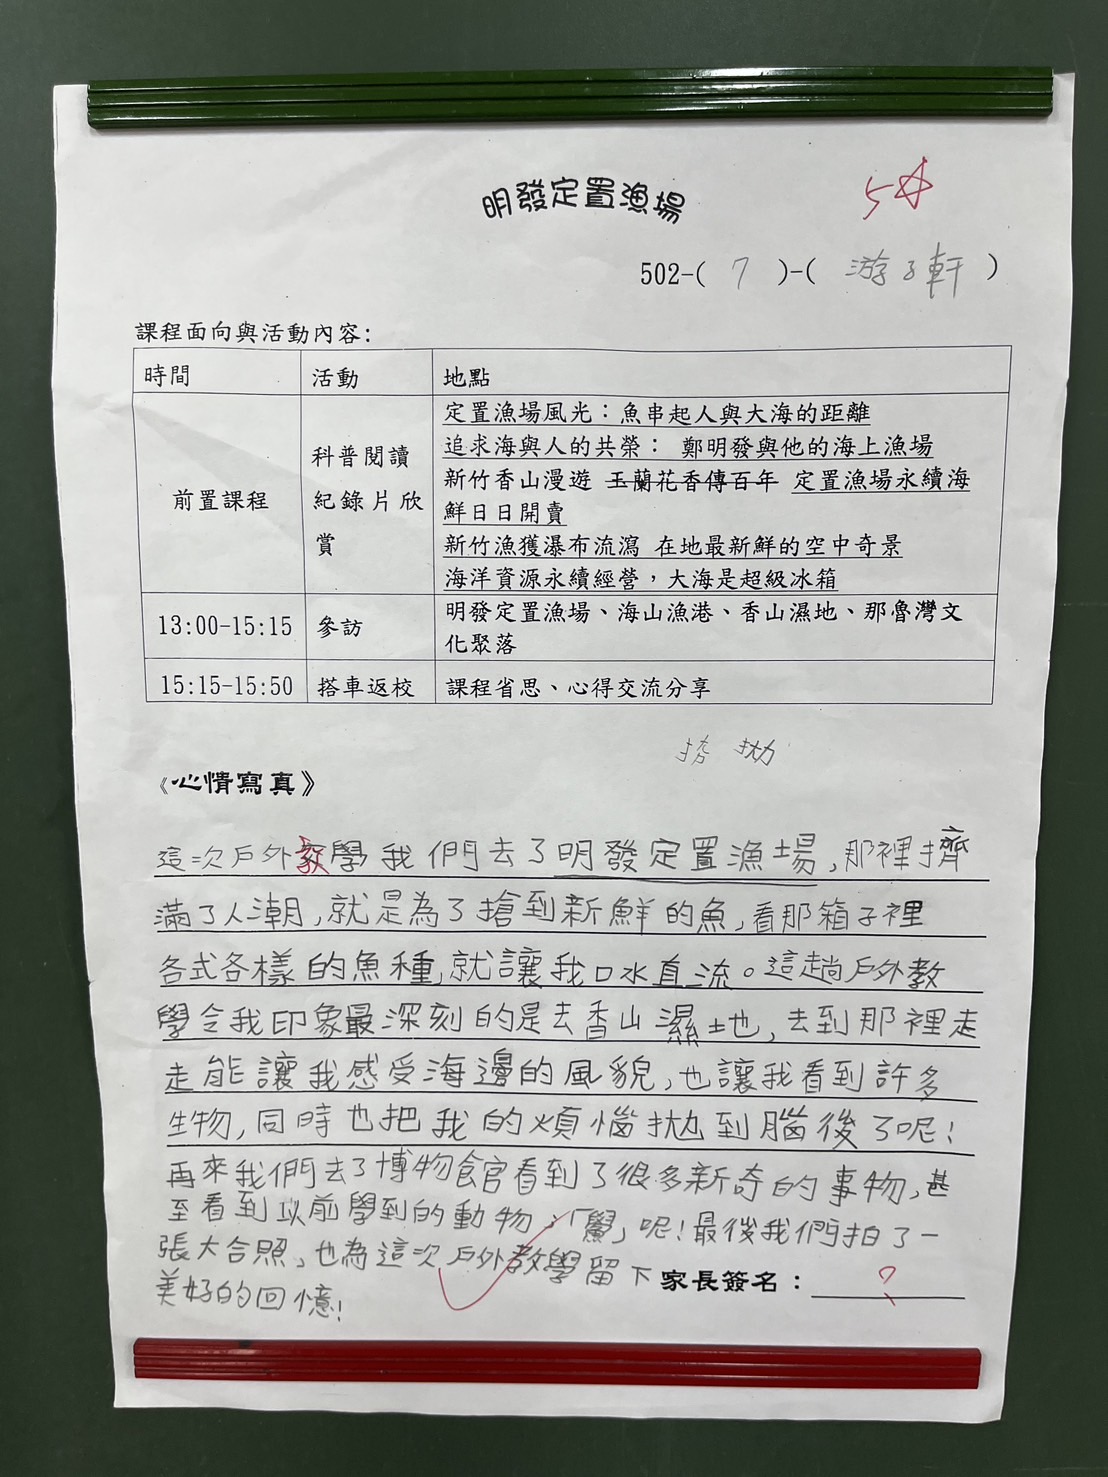 明發定置漁場
5☆
502-( 7 )-( 游子軒 )
課程面向與活動內容:
時間 活動 地點
前置課程 科普閱讀紀錄片欣賞
定置漁場風光：魚串起人與大海的距離
追求海與人的共榮： 鄭明發與他的海上漁場
新竹香山漫遊 玉蘭花香傳百年 定置漁場永續海
鮮日日開賣
新竹漁獲瀑布流瀉 在地最新鮮的空中奇景
海洋資源永續經營，大海是超級冰箱
13:00-15:15 參訪 明發定置漁場、海山漁港、香山濕地、那魯灣文
化聚落
15:15-15:50 搭車返校 課程省思、心得交流分享
拋
《心情寫真》
這次戶外教學我們去了明發定置漁場,那裡擠
滿了人潮,就是為了搶到新鮮的魚,看那箱子裡
各式各樣的魚種,就讓我口水直流。這趟戶外教
學令我印象最深刻的是去香山濕地,去到那裡走
走能讓我感受海邊的風貌,也讓我看到許多
生物,同時也把我的煩惱拋到腦後了呢!
再來我們去了博物館看到了很多新奇的事物,甚
至看到以前學到的動物,「鱟」呢!最後我們拍了一
張大合照,也為這次戶外教學留下
美好的回憶!
家長簽名： ?